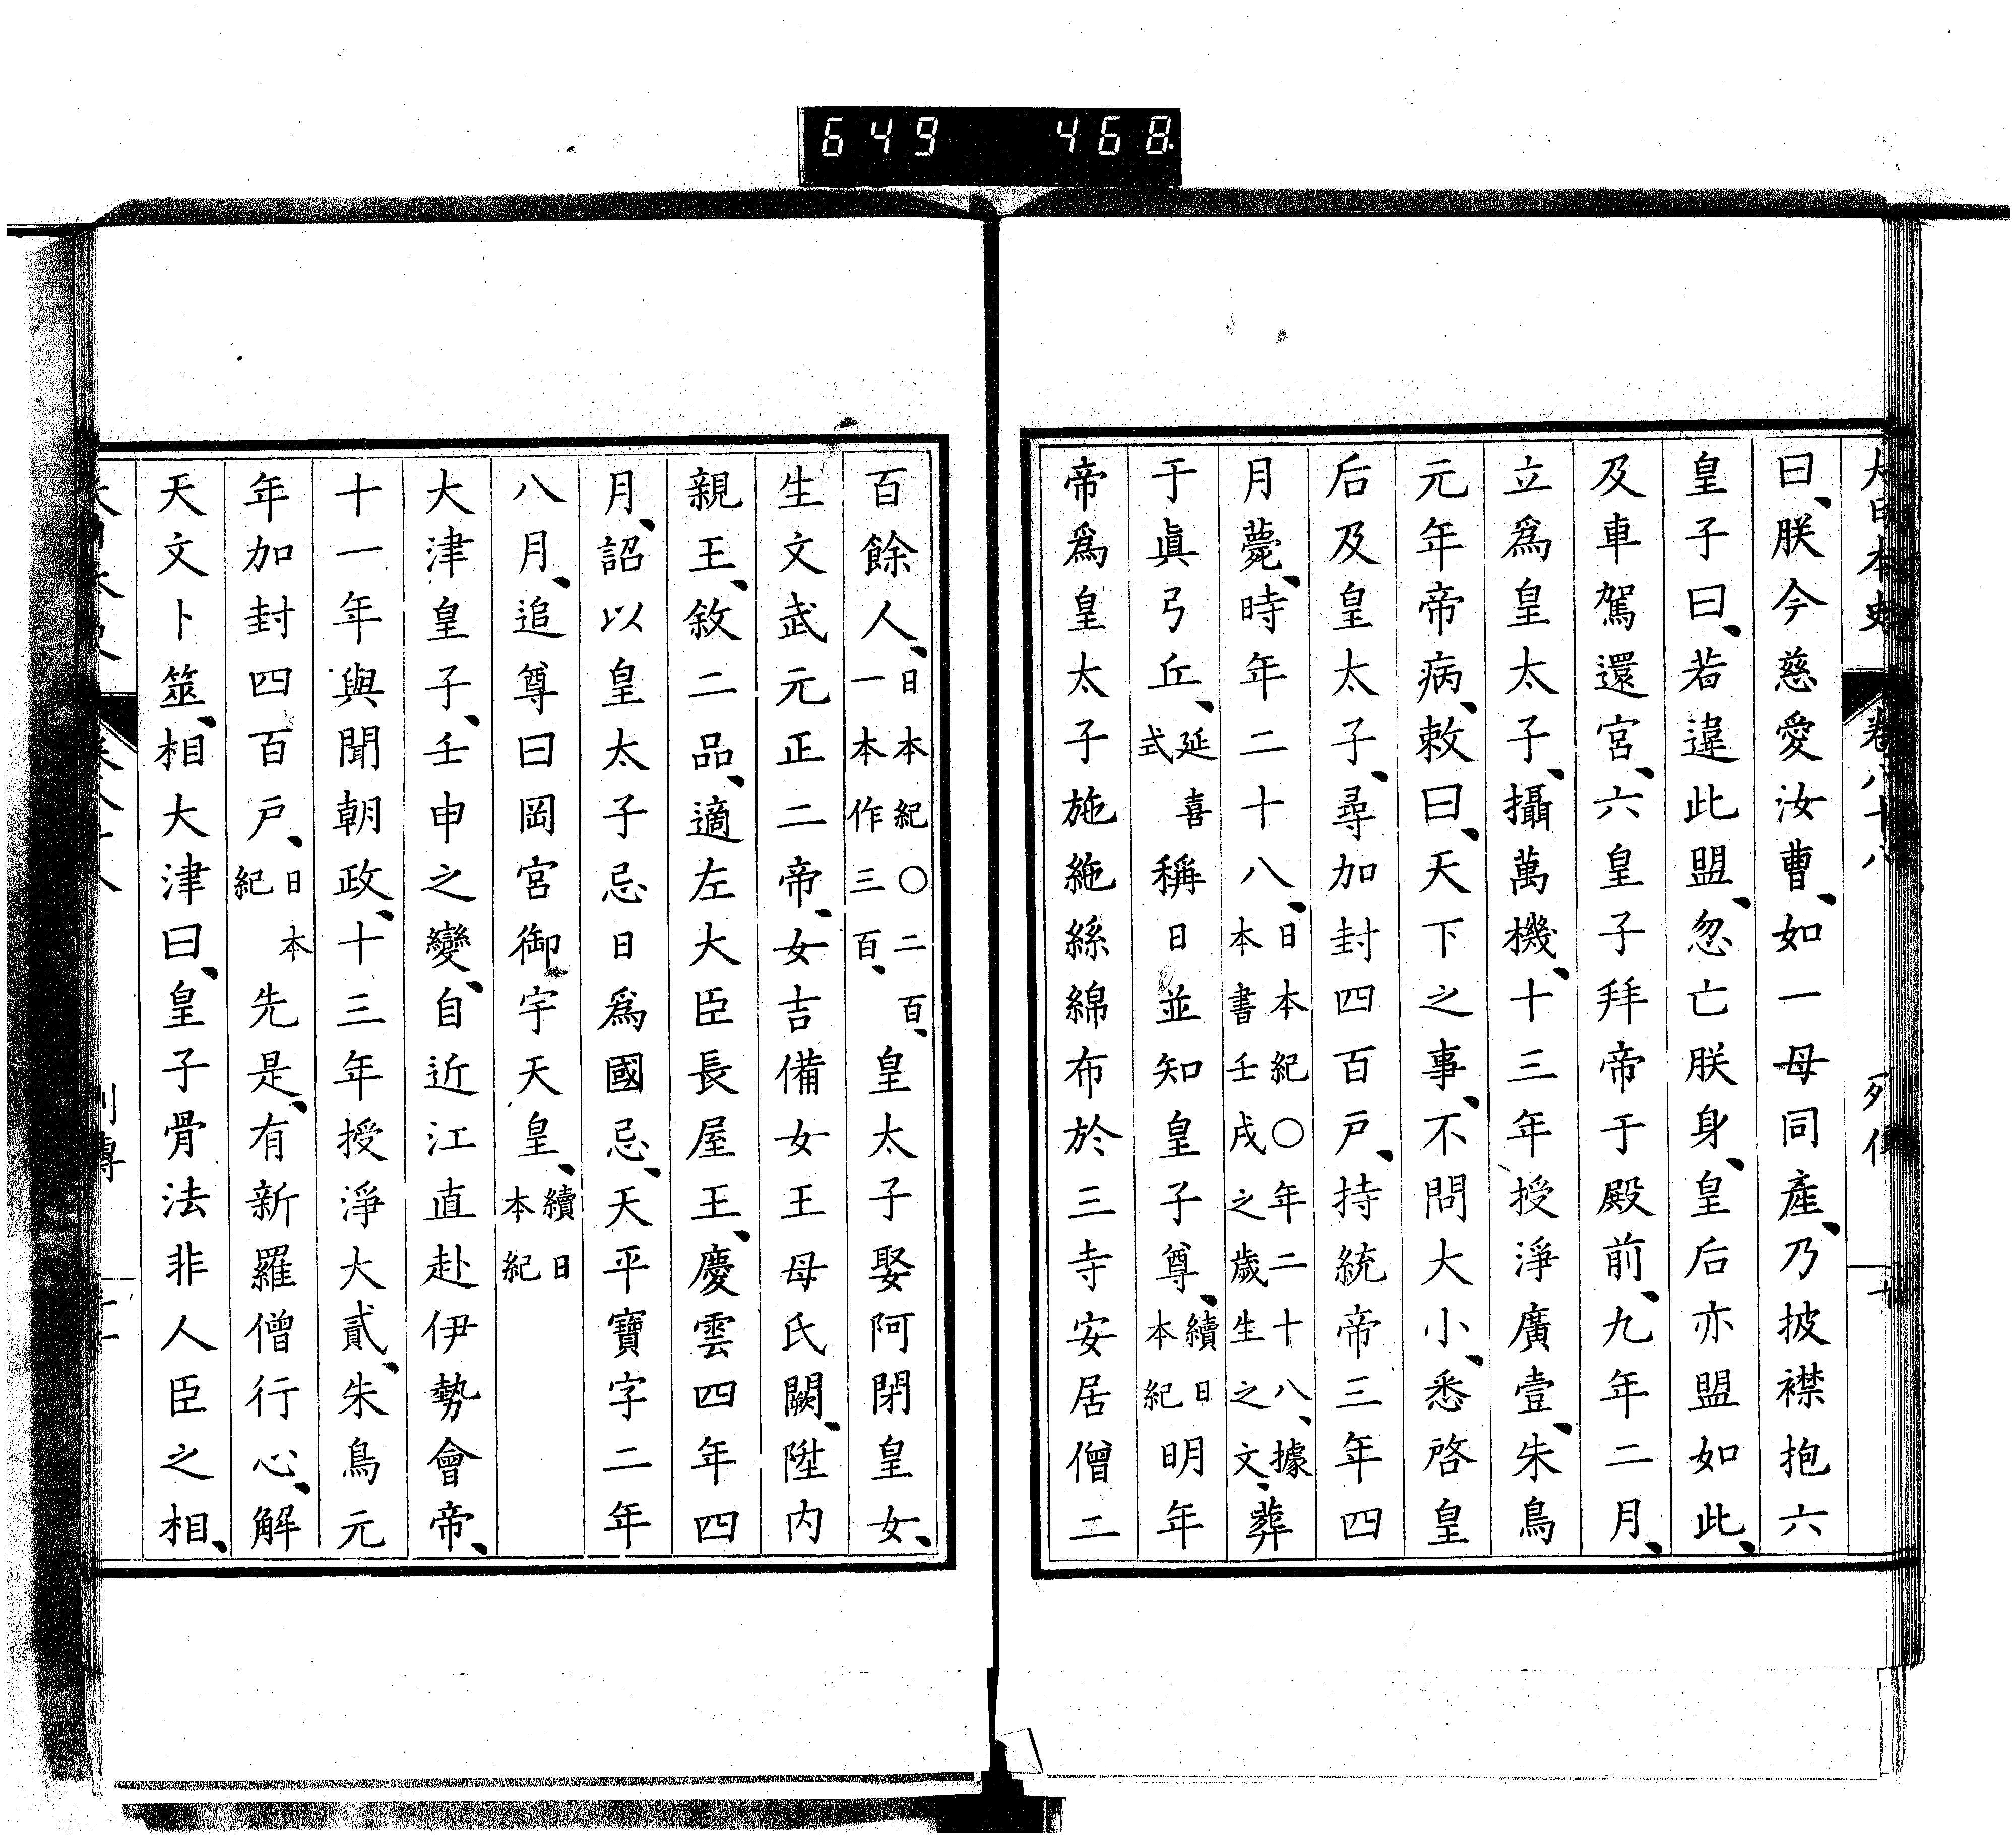 649 468
大日本史 卷八十八 列傳
曰、朕今慈愛汝曹、如一母同產、乃披襟抱六
皇子曰、若違此盟、忽亡朕身、皇后亦盟如此、
及車駕還宮、六皇子拜帝于殿前、九年二月、
立爲皇太子、攝萬機、十三年授淨廣壹、朱鳥
元年帝病、敕曰、天下之事、不問大小、悉啓皇
后及皇太子、尋加封四百戶、持統帝三年四
月薨、時年二十八、日本紀〇年二十八、據本書壬戌之歲生之文、葬
于眞弓丘、延喜式稱日並知皇子尊、續日本紀明年
帝爲皇太子施絁絲綿布於三寺安居僧二
百餘人、日本紀〇二百、一本作三百、皇太子娶阿閉皇女、
生文武元正二帝、女吉備女王母氏闕、陞內
親王、敘二品、適左大臣長屋王、慶雲四年四
月、詔以皇太子忌日爲國忌、天平寶字二年
八月、追尊曰岡宮御宇天皇、續日本紀
大津皇子、壬申之變、自近江直赴伊勢會帝、
十一年與聞朝政、十三年授淨大貳、朱鳥元
年加封四百戶、日本紀先是、有新羅僧行心、解
天文卜筮、相大津曰、皇子骨法非人臣之相、